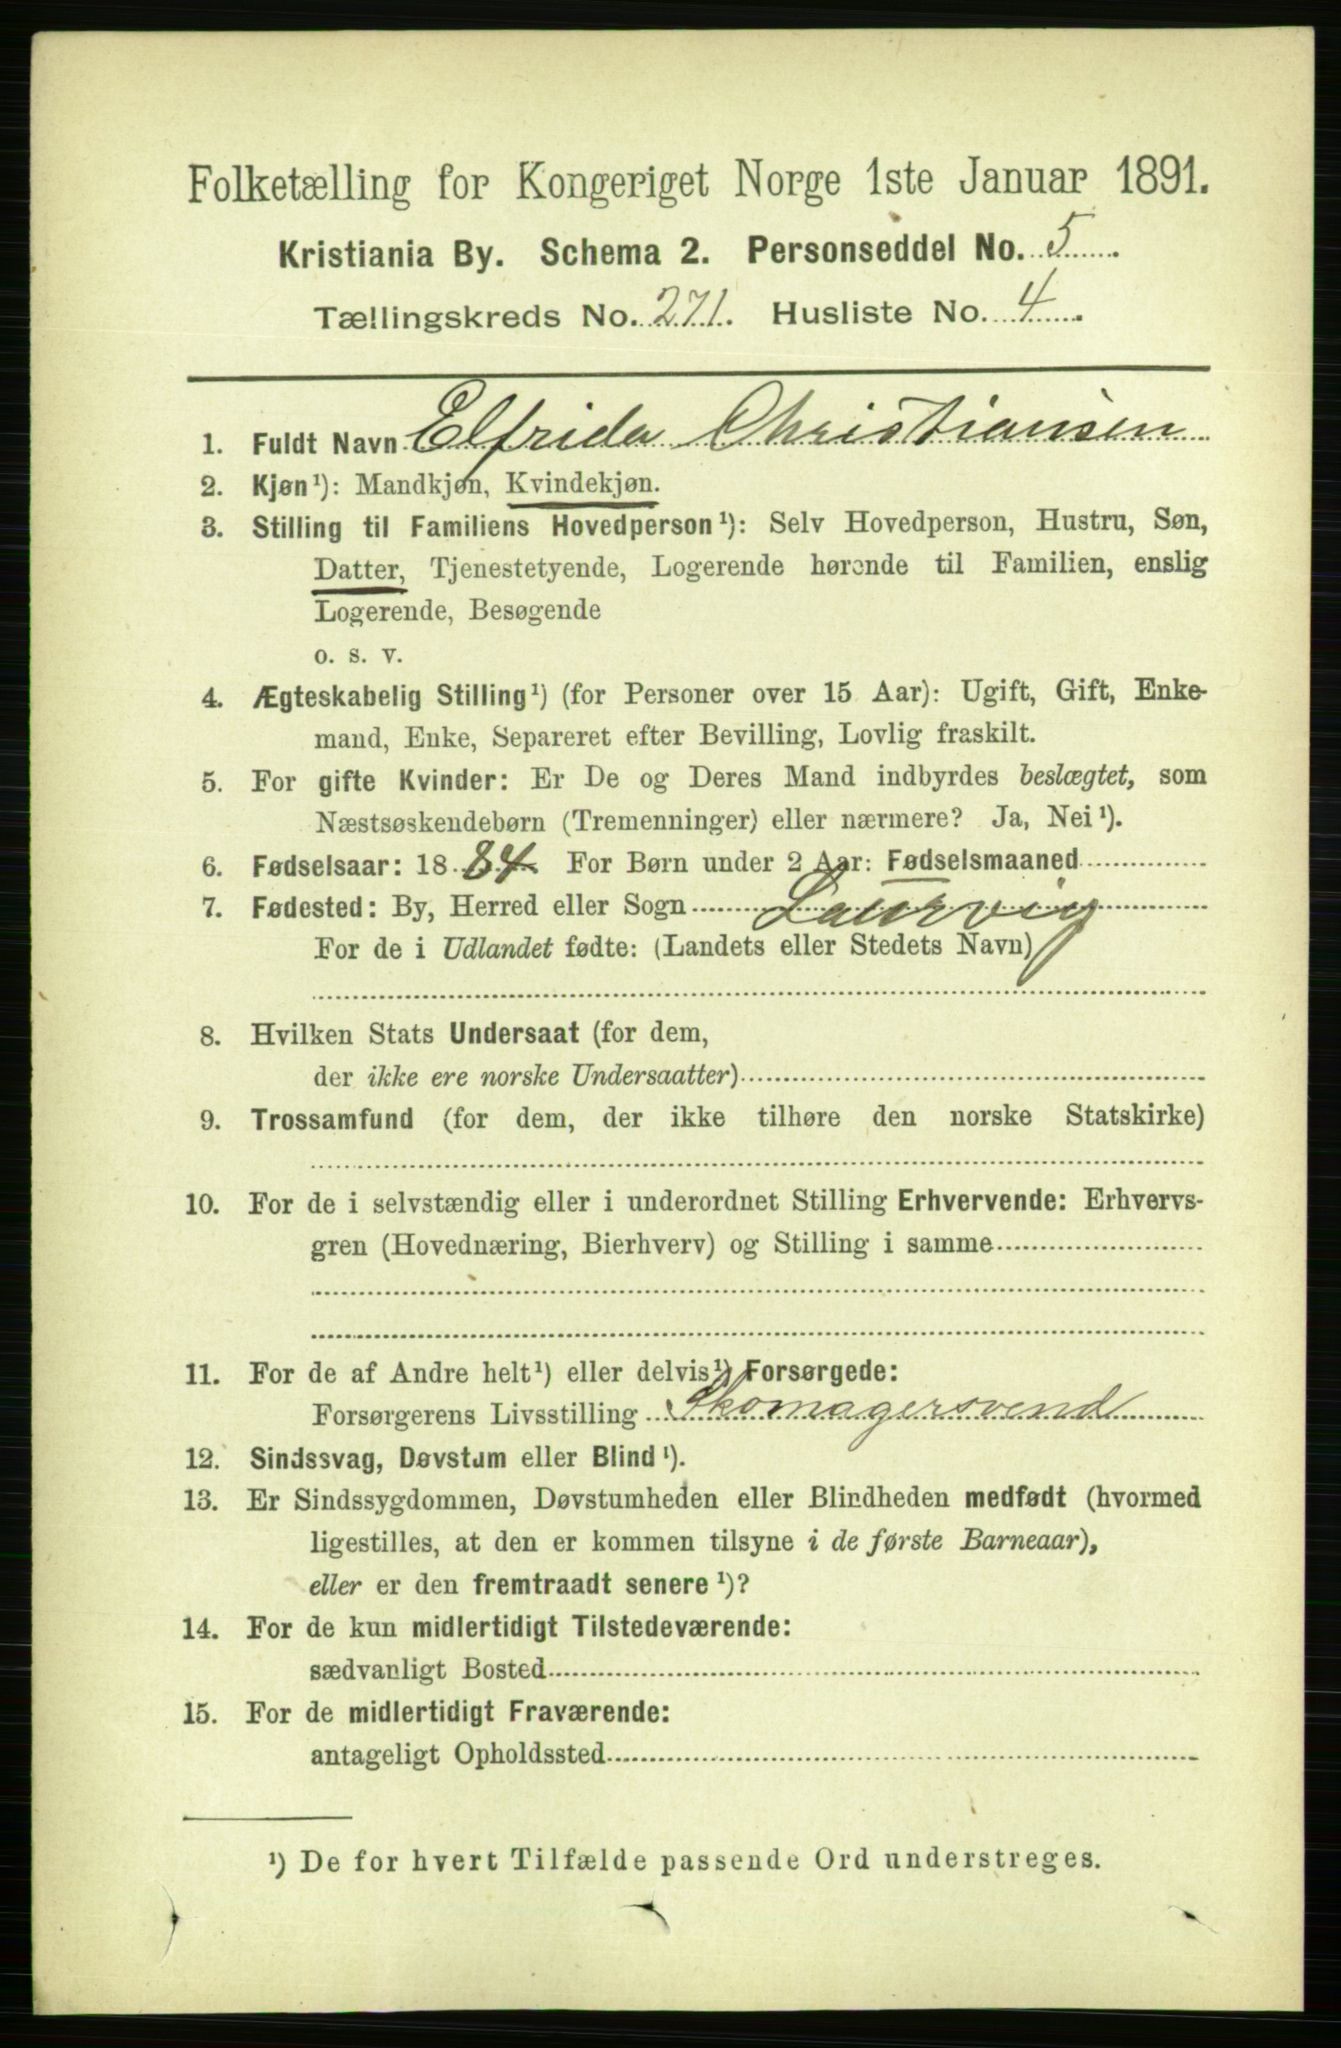 Folketælling for Kongeriget Norge 1ste Januar 1891.
Kristiania By. Schema 2. Personseddel No. 5
Tællingskreds No. 271. Husliste No. 4
1. Fuldt Navn Elfrida Christiansen
2. Kjøn¹): Mandkjøn, Kvindekjøn.
3. Stilling til Familiens Hovedperson¹): Selv Hovedperson, Hustru, Søn,
Datter, Tjenestetyende, Logerende hørende til Familien, enslig
Logerende, Besøgende
o. s. v.
4. Ægteskabelig Stilling¹) (for Personer over 15 Aar): Ugift, Gift, Enke-
mand, Enke, Separeret efter Bevilling, Lovlig fraskilt.
5. For gifte Kvinder: Er De og Deres Mand indbyrdes beslægtet, som
Næstsøskendebørn (Tremenninger) eller nærmere? Ja, Nei¹).
6. Fødselsaar: 1884 For Børn under 2 Aar: Fødselsmaaned
7. Fødested: By, Herred eller Sogn Laurvig
For de i Udlandet fødte: (Landets eller Stedets Navn)
8. Hvilken Stats Undersaat (for dem,
der ikke ere norske Undersaatter)
9. Trossamfund (for dem, der ikke tilhøre den norske Statskirke)
10. For de i selvstændig eller i underordnet Stilling Erhvervende: Erhvervs-
gren (Hovednæring, Bierhverv) og Stilling i samme
11. For de af Andre helt¹) eller delvis¹) Forsørgede:
Forsørgerens Livsstilling Skomagersvend
12. Sindssvag, Døvstum eller Blind¹).
13. Er Sindssygdommen, Døvstumheden eller Blindheden medfødt (hvormed
ligestilles, at den er kommen tilsyne i de første Barneaar),
eller er den fremtraadt senere¹)?
14. For de kun midlertidigt Tilstedeværende:
sædvanligt Bosted
15. For de midlertidigt Fraværende:
antageligt Opholdssted
¹) De for hvert Tilfælde passende Ord understreges.